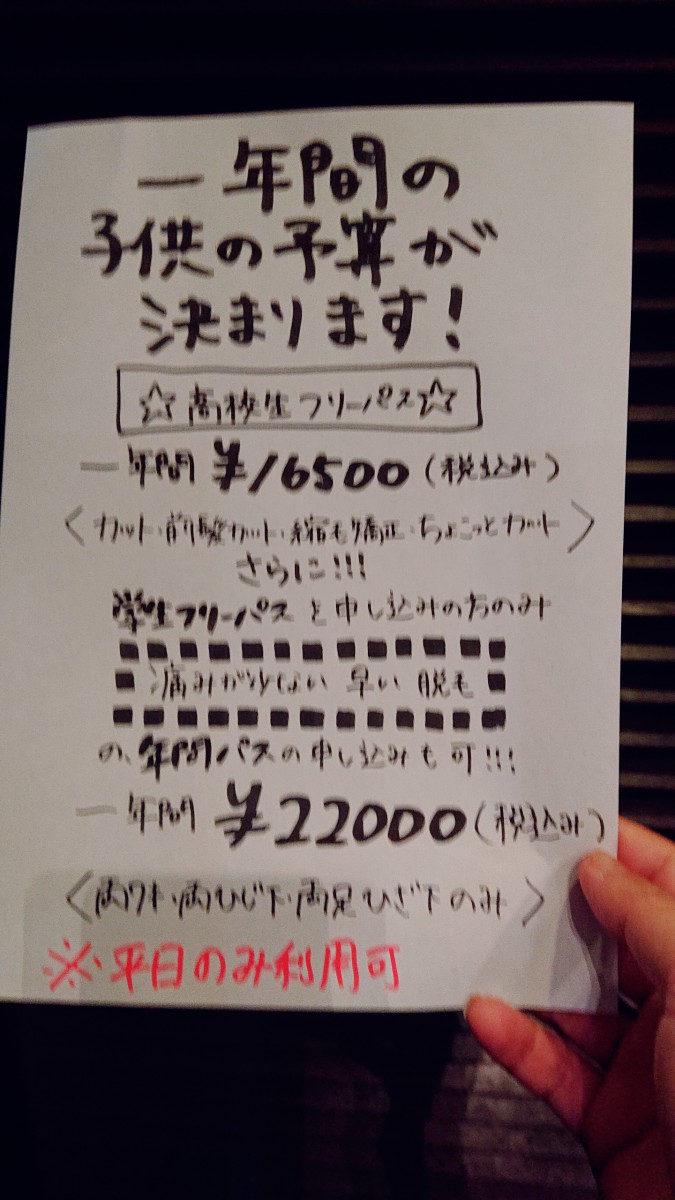 一年間の
子供の予算が
決まります!
☆高校生フリーパス☆
一年間 ¥16500(税込み)
〈カット・前髪カット・縮毛矯正・ちょこっとカット〉
さらに!!!
学生フリーパスと申し込みの方のみ
痛みが少ない 早い 脱毛
の、年間パスの申し込みも可!!!
一年間 ¥22000(税込み)
〈両ワキ・両ひじ下・両足ひざ下のみ〉
※平日のみ利用可